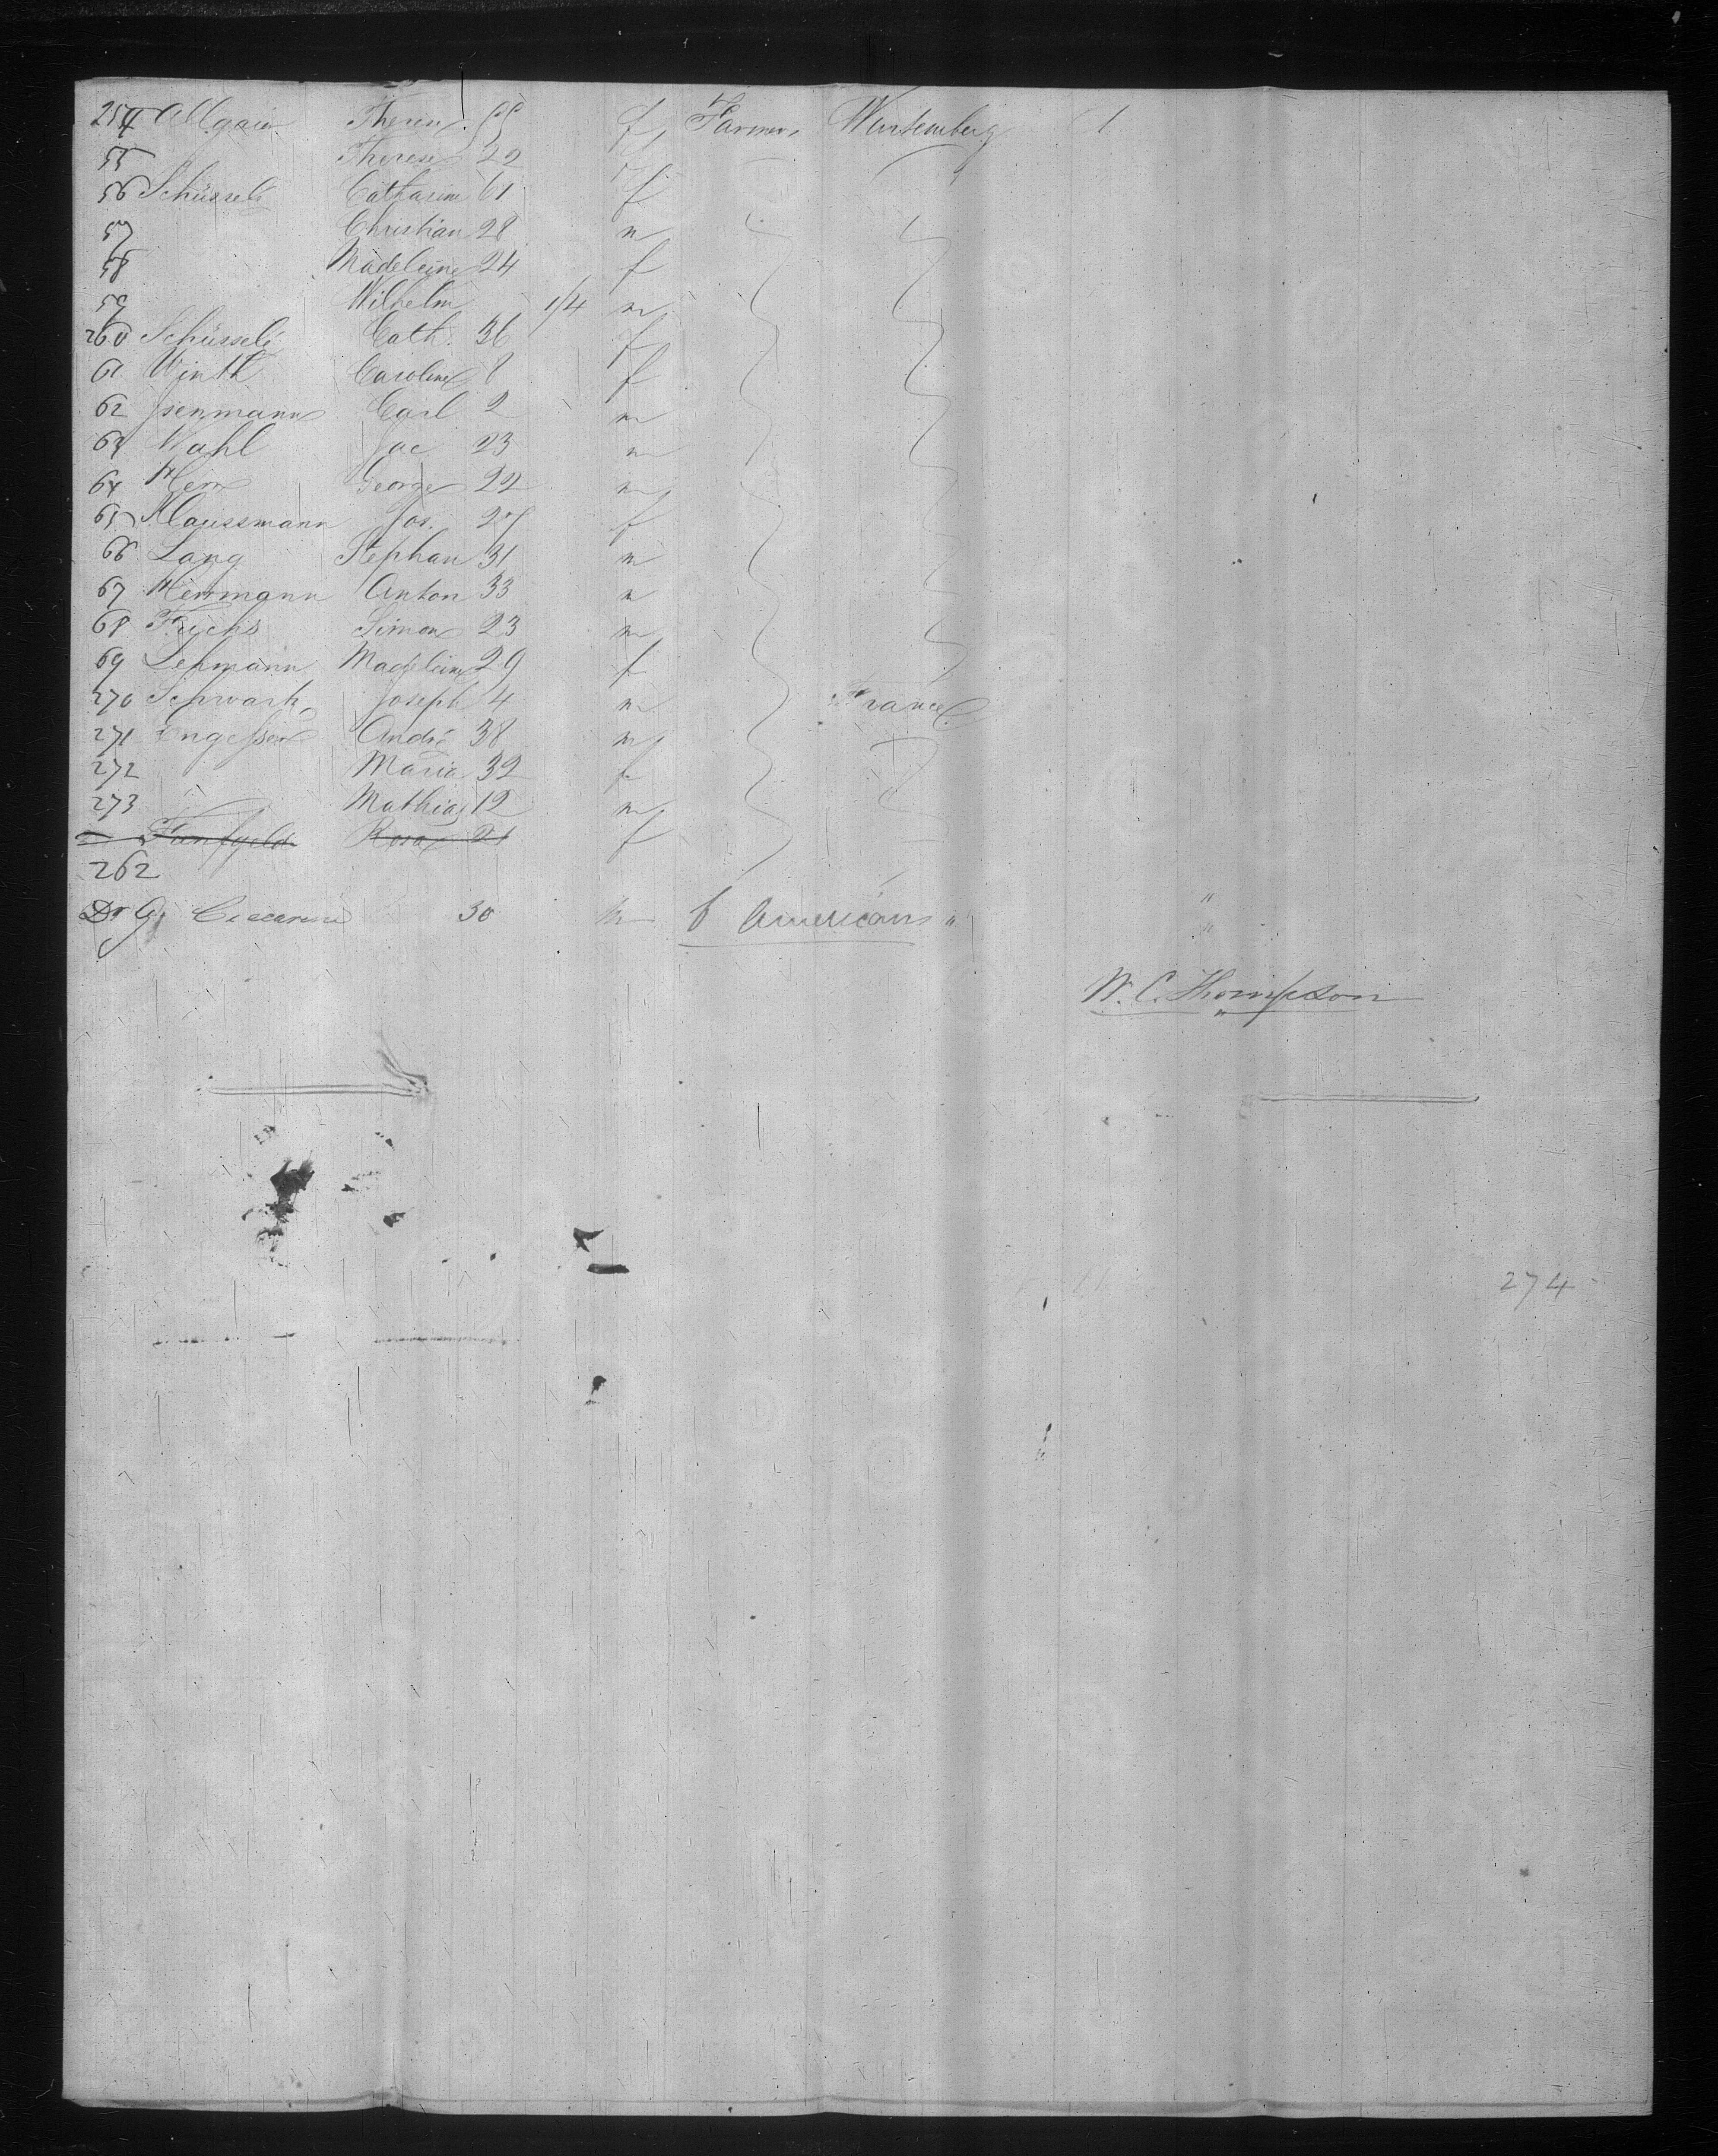 254 Allgaier Theres. 55 f Farmer Wurtemberg 1
55 Therese 22 f
56 Schüssele Catharine 61 f
57 Christian 28 m
58 Madeleine 24 f
59 Wilhelm 1/4 m
260 Schüssele Cath. 36 f
61 Winth Caroline 8 f
62 Isenmann Carl 2 m
63 Wahl Jac 23 m
64 Herr George 22 m
65 Haussmann Jos. 27 f
66 Lang Stephan 31 m
67 Herrmann Anton 33 m
68 Fuchs Simon 23 m
69 Lehmann Madeleine 29 f
270 Schwark Joseph 4 m France
271 André 38 m
272 Maria 32 f
273 Mathias 12 m
Rosa 21 f
262
Dr G. 30 m 6 Americans "
"
W. C. Thompson
274